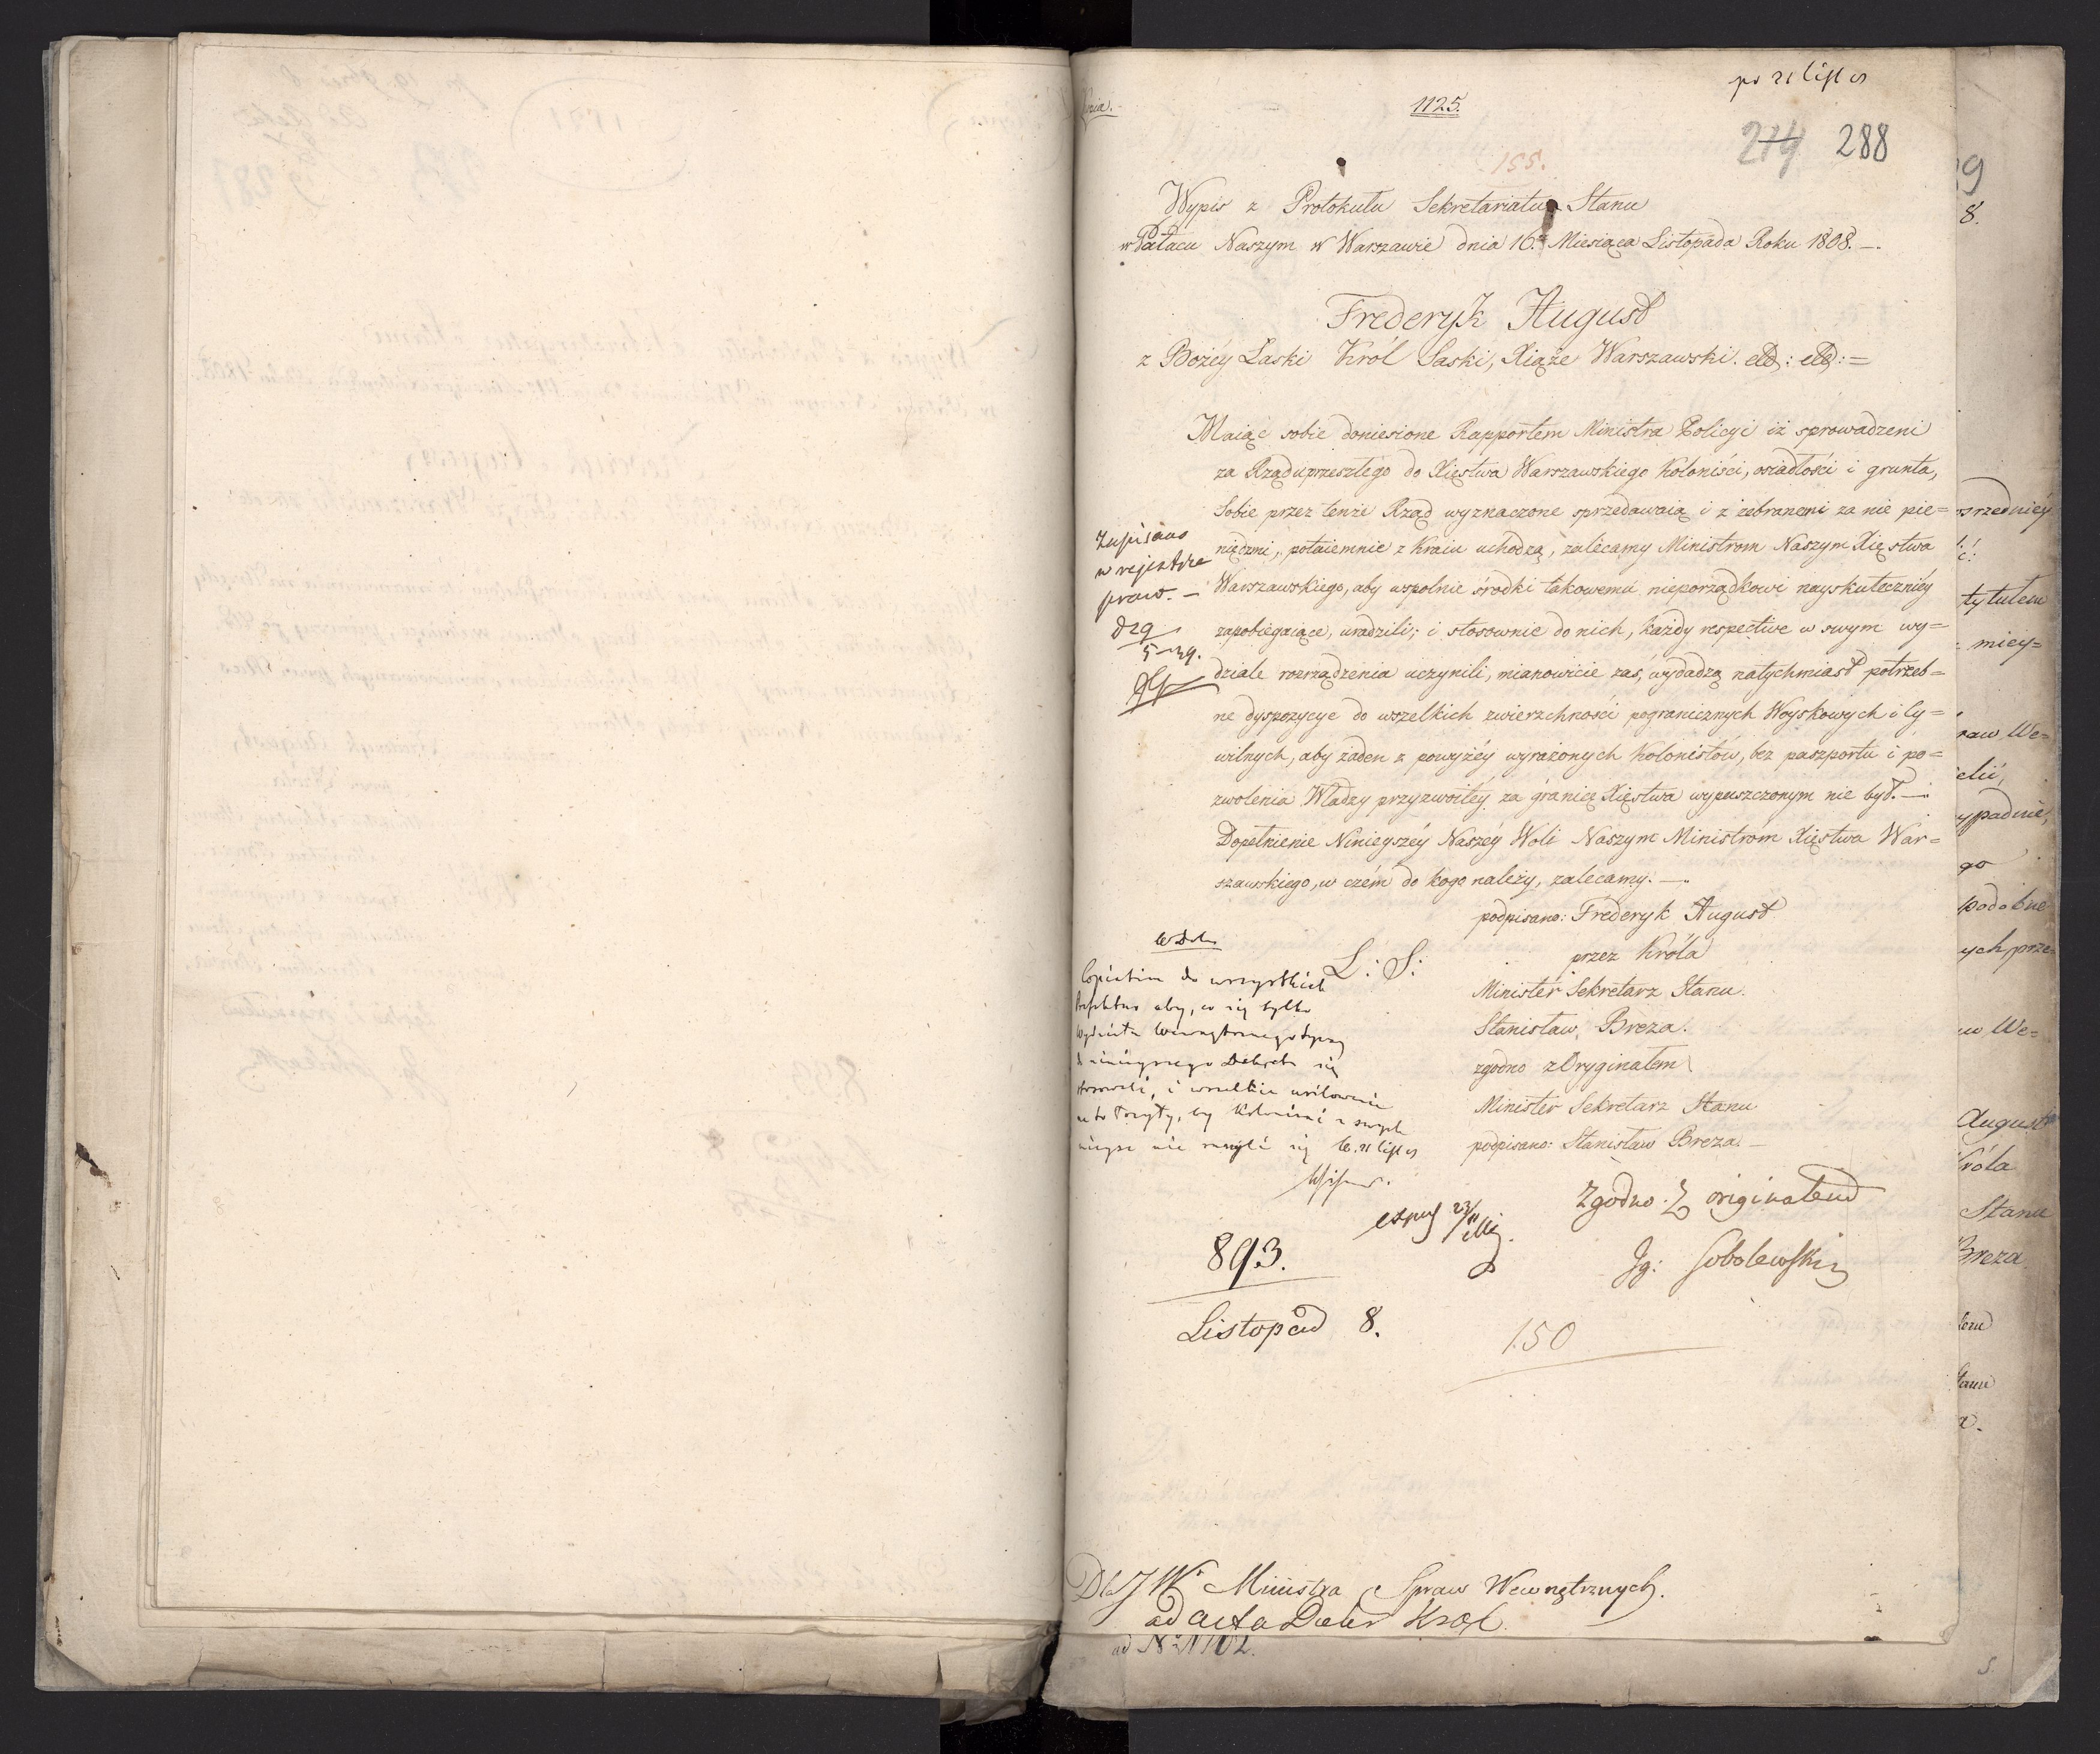 1125.
pr 21 list
155.
214 288
Wypis z Protokułu Sekretariatu Stanu
w Pałacu Naszym w Warszawie dnia 16. Miesiąca Listopada Roku 1808.
Frederyk August
z Bożéy Łaski Król Saski, Xiąże Warszawski. etc: etc: =
Maiąc sobie doniesione Rapportem Ministra Policyi iż sprowadzeni
za Rządu przeszłego do Xięstwa Warszawskiego Koloniści, osiadłości i grunta,
sobie przez tenże Rząd wyznaczone sprzedawaią i z zebranemi za nie pie=
niędzmi, potaiemnie z Kraiu uchodzą, zalecamy Ministrom Naszym Xięstwa
Warszawskiego, aby wspolnie środki takowemu nieporządkowi nayskuteczniéy
zapobiegaiące, uradzili; i stosownie do nich, każdy respective w swym wy=
dziale rozrządzenia uczynili, mianowicie zaś, wydadzą natychmiast potrzeb=
ne dyspozycye do wszelkich zwierzchności pogranicznych Woyskowych i Cy=
wilnych, aby żaden z powyżéy wyrażonych Kolonistów, bez paszportu i po=
zwolenia Władzy przyzwoitéy za granicę Xięstwa wypuszczonym nie był.
Dopełnienie Ninieyszéy Naszéy Woli Naszym Ministrom Xięstwa War=
szawskiego, w czém do kogo należy, zalecamy.
podpisano: Frederyk August
L: S:
przez Króla
Minister Sekretarz Stanu.
Stanisław Breza.
zgodno z Oryginałem
Minister Sekretarz Stanu
podpisano: Stanisław Breza.
Zgodno z originałem
Jg: Sobolewski
Zapisano
w rejestrze
praw.
do wszystkich
aby, co się tylko
ninieyszego Dekretu się
i wszelkie usiłowanie
by Koloniści z swych
mieysc nie się 21
893.
Listopad 8.
150
Dla JW Ministra Spraw Wewnętrznych.
ad acta Król
osrzedniéy
tytułem
miey=
raw We=
ypadnie,
go
podobne
ych, prze=
w We=
August
Króla
Stanu
Breza